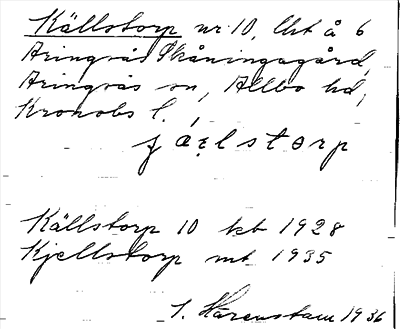 Källstorp nr 10, Urt å 6
Aringsås Skåningagård,
Aringsås sn, Allbo hd,
Kronobs l.
Källstorp 10 kb 1928
Kjellstorp mt 1935
S. Härenstam 1936